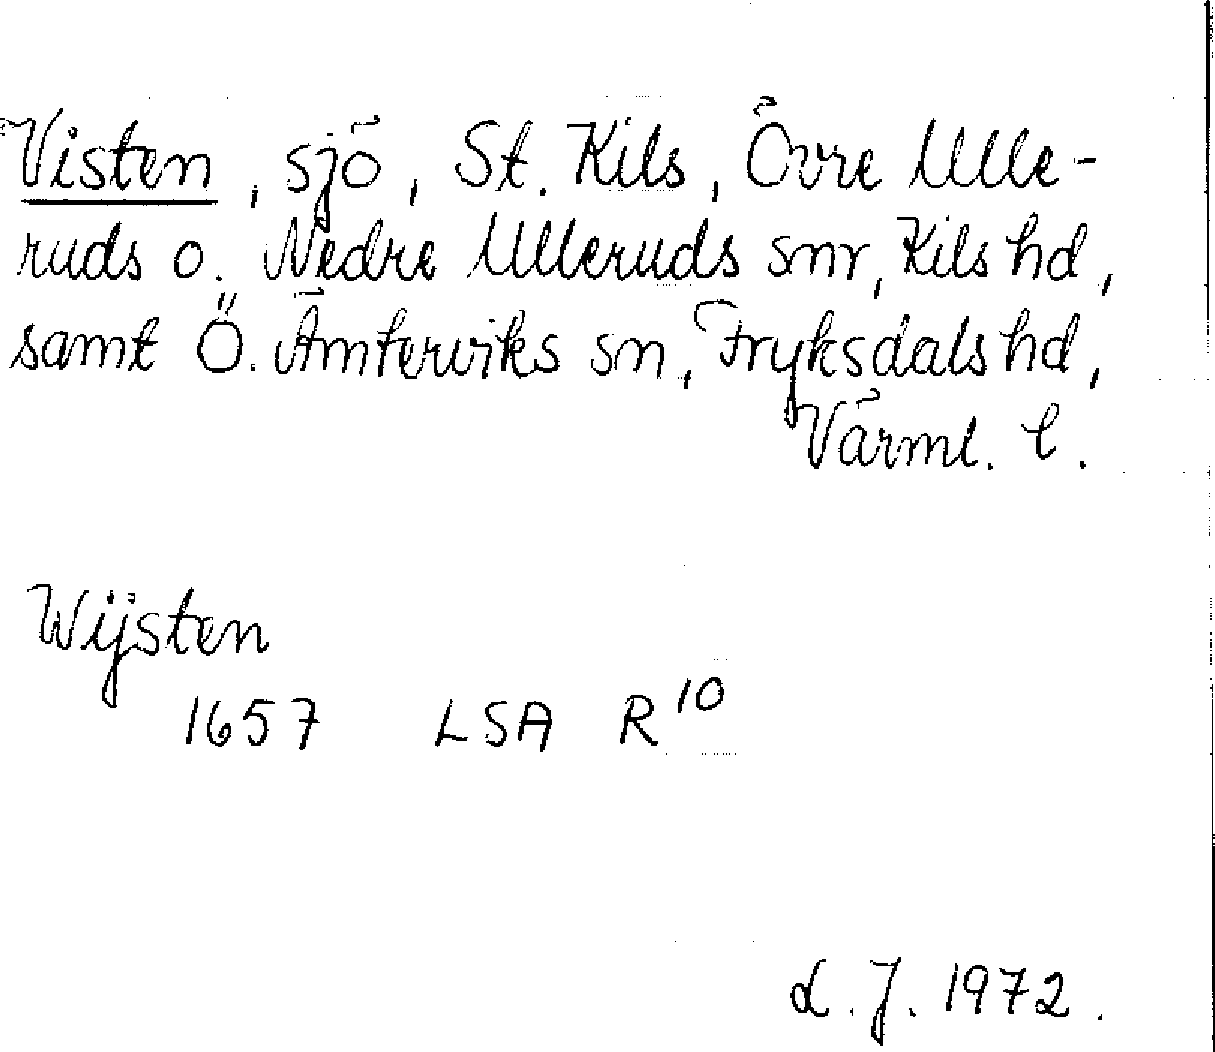 Visten, sjö, St. Kils, Övre Ulle-
ruds o. Nedre Ulleruds snr, Kils hd,
samt Ö. Ämterviks sn, Fryksdals hd,
Värml. l.
Wijsten
1657 LSA R 10
L. J. 1972.